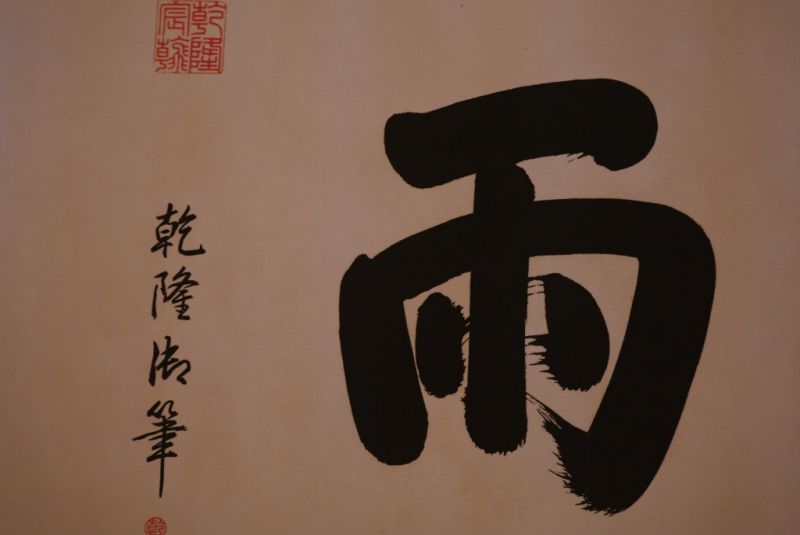 雨
乾隆御筆
乾隆宸翰